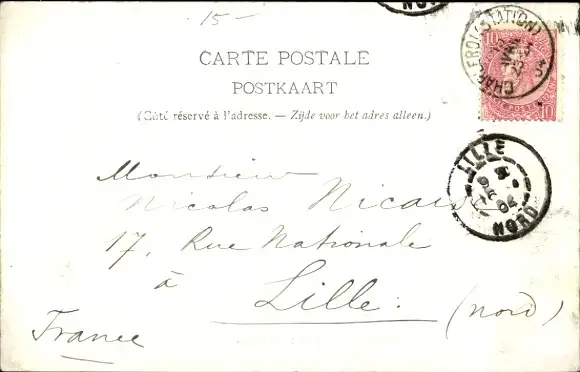 15-
CARTE POSTALE
POSTKAART
(Côté réservé à l'adresse. — Zijde voor het adres alleen.)
CHARLEROI (STATION)
10 10
LILLE
NORD
Monsieur
Nicolas Nicaise
17, Rue Nationale
à
Lille.
(Nord)
France